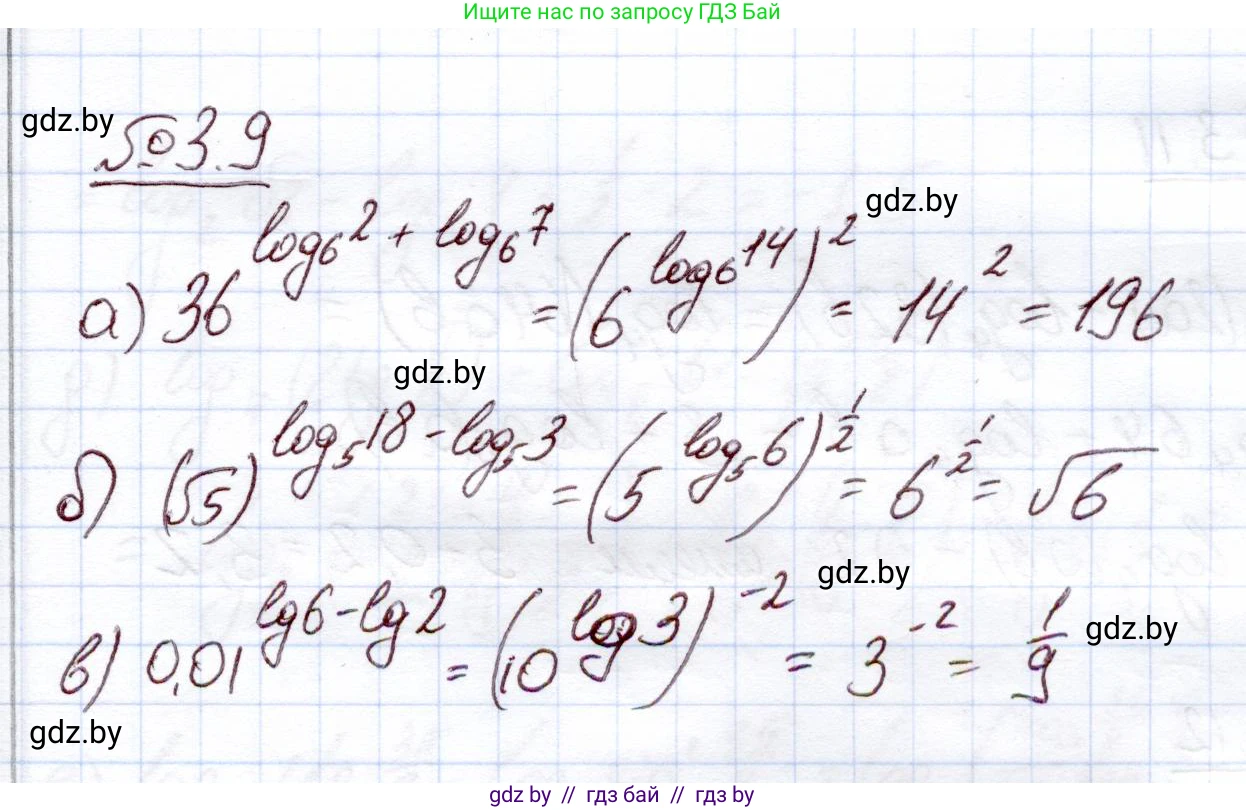 Ищите нас по запросу ГДЗ Бай
gdz.by
№3.9
gdz.by
а) 36^(log₆2 + log₆7) = (6^(log₆14))² = 14² = 196
gdz.by
б) (√5)^(log₅18 - log₅3) = (5^(log₅6))^(1/2) = 6^(1/2) = √6
gdz.by
в) 0,01^(lg6 - lg2) = (10^(log3))^(-2) = 3^(-2) = 1/9
gdz.by
gdz.by
gdz.by // гдз бай // гдз by